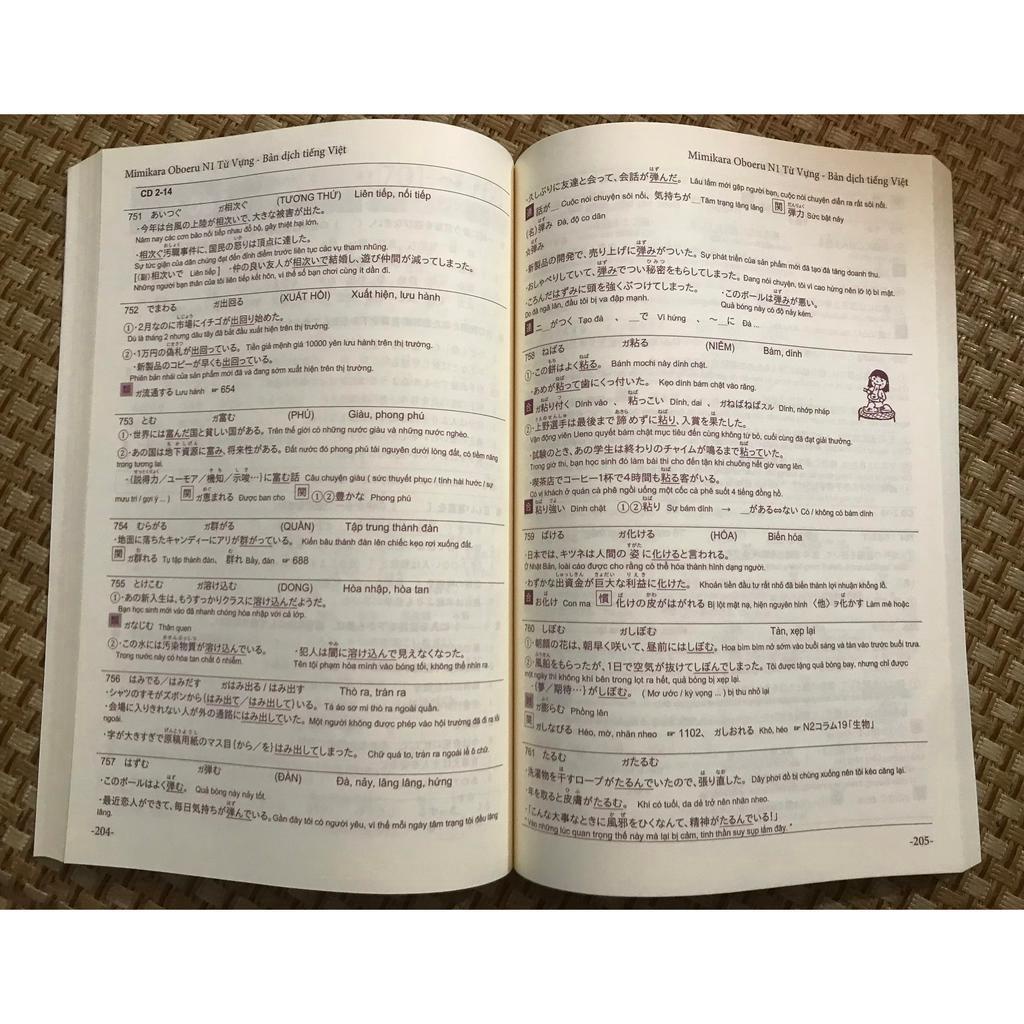 Mimikara Oboeru N1 Từ Vựng - Bản dịch tiếng Việt
CD 2-14
751 あいつぐ ガ相次ぐ (TƯƠNG THỨ) Liên tiếp, nối tiếp
・今年は台風の上陸が相次いで、大きな被害が出た。
Năm nay các cơn bão nối tiếp nhau đổ bộ, gây thiệt hại lớn.
・相次ぐ汚職事件に、国民の怒りは頂点に達した。
Sự tức giận của dân chúng đạt đến đỉnh điểm trước liên tục các vụ tham nhũng.
[(副)相次いで Liên tiếp] ・仲の良い友人が相次いで結婚し、遊び仲間が減ってしまった。
Những người bạn thân của tôi liên tiếp kết hôn, vì thế số bạn chơi cùng ít dần đi.
752 でまわる ガ出回る (XUẤT HỒI) Xuất hiện, lưu hành
①・2月なのに市場にイチゴが出回り始めた。
Dù là tháng 2 nhưng dâu tây đã bắt đầu xuất hiện trên thị trường.
②・1万円の偽札が出回っている。 Tiền giả mệnh giá 10000 yên lưu hành trên thị trường.
・新製品のコピーが早くも出回っている。
Phiên bản nhái của sản phẩm mới đã và đang sớm xuất hiện trên thị trường.
類 ガ流通する Lưu hành ☞ 654
753 とむ ガ富む (PHÚ) Giàu, phong phú
①・世界には富んだ国と貧しい国がある。 Trên thế giới có những nước giàu và những nước nghèo.
②・あの国は地下資源に富み、将来性がある。 Đất nước đó phong phú tài nguyên dưới lòng đất, có tiềm năng
trong tương lai.
・{説得力/ユーモア/機知/示唆…}に富む話 Câu chuyện giàu ( sức thuyết phục / tính hài hước / sự
mưu trí / gợi ý ... ) 関 ガ恵まれる Được ban cho 関 ①②豊かな Phong phú
754 むらがる ガ群がる (QUẦN) Tập trung thành đàn
・地面に落ちたキャンディーにアリが群がっている。 Kiến bâu thành đàn lên chiếc kẹo rơi xuống đất.
関 ガ群れる Tụ tập thành đàn、 群れ Bầy, đàn ☞ 688
755 とけこむ ガ溶け込む (DONG) Hòa nhập, hòa tan
①・あの新入生は、もうすっかりクラスに溶け込んだようだ。
Bạn học sinh mới vào đã nhanh chóng hòa nhập với cả lớp.
類 ガなじむ Thân thuộc
②・この水には汚染物質が溶け込んでいる。 ・犯人は闇に溶け込んで見えなくなった。
Trong nước này có hòa tan chất ô nhiễm. Tên tội phạm hòa mình vào bóng tối, không thể nhìn ra.
756 はみでる/はみだす ガはみ出る / はみ出す Thò ra, tràn ra
・シャツのすそがズボンから{はみ出て/はみ出して}いる。 Tà áo sơ mi thò ra ngoài quần.
・会場に入りきれない人が外の通路にはみ出していた。 Một người không được phép vào hội trường đã đi ra lối
ngoài.
・字が大きすぎて原稿用紙のマス目{から/を}はみ出してしまった。 Chữ quá to, tràn ra ngoài lề ô chữ.
757 はずむ ガ弾む (ĐÀN) Đà, nảy, lâng lâng, hứng
・このボールはよく弾む。 Quả bóng này nảy tốt.
・最近恋人ができて、毎日気持ちが弾んでいる。 Gần đây tôi có người yêu, vì thế mỗi ngày tâm trạng tôi đều lâng
lâng.
-204-
Mimikara Oboeru N1 Từ Vựng - Bản dịch tiếng Việt
・久しぶりに友達と会って、会話が弾んだ。 Lâu lắm mới gặp người bạn, cuộc nói chuyện diễn ra rất sôi nổi.
連 話が＿ Cuộc nói chuyện sôi nổi, 気持ちが＿ Tâm trạng lâng lâng 関 弾力 Sức bật nảy
(名)弾み Đà, độ co dãn
☆弾み
・新製品の開発で、売り上げに弾みがついた。 Sự phát triển của sản phẩm mới đã tạo đà tăng doanh thu.
・おしゃべりしていて、弾みでつい秘密をもらしてしまった。 Đang nói chuyện, tôi vì cao hứng nên lỡ lộ bí mật.
・ころんだはずみに頭を強くぶつけてしまった。 ・このボールは弾みが悪い。
Do đà ngã lăn, đầu tôi bị va đập mạnh. Quả bóng này có độ nảy kém.
連 ニ＿がつく Tạo đà 、 ＿で Vì hứng 、 ～＿に Đà ...
758 ねばる ガ粘る (NIÊM) Bám, dính
①・この餅はよく粘る。 Bánh mochi này dính chặt.
・あめが粘って歯にくっ付いた。 Kẹo dính bám chặt vào răng.
合 ガ粘り付く Dính vào 、 粘っこい Dính, dai 、 ガねばねばスル Dính, nhớp nháp
②・上野選手は最後まで諦めずに粘り、入賞を果たした。
Vận động viên Ueno quyết bám chặt mục tiêu đến cùng không từ bỏ, cuối cùng đã đạt giải thưởng.
・試験のとき、あの学生は終わりのチャイムが鳴るまで粘っていた。
Trong giờ thi, bạn học sinh đó làm bài thi cho đến tận khi chuông hết giờ vang lên.
・喫茶店でコーヒー1杯で4時間も粘る客がいる。
Có vị khách ở quán cà phê ngồi uống một cốc cà phê suốt 4 tiếng đồng hồ.
合 粘り強い Dính chặt ①②粘り Sự bám dính → ＿がある⇔ない Có / không có bám dính
759 ばける ガ化ける (HÓA) Biến hóa
・日本では、キツネは人間の姿に化けると言われる。
Ở Nhật Bản, loài cáo được cho rằng có thể hóa thành hình dạng người.
・わずかな出資金が巨大な利益に化けた。 Khoản tiền đầu tư rất nhỏ đã biến thành lợi nhuận khổng lồ.
合 お化け Con ma 慣 化けの皮がはがれる Bị lột mặt nạ, hiện nguyên hình 〈他〉ヲ化かす Làm mê hoặc
760 しぼむ ガしぼむ Tàn, xẹp lại
①・朝顔の花は、朝早く咲いて、昼前にはしぼむ。 Hoa bìm bìm nở sớm vào buổi sáng và tàn vào trước buổi trưa.
②・風船をもらったが、1日で空気が抜けてしぼんでしまった。 Tôi được tặng quả bóng bay, nhưng chỉ được
một ngày thì không khí bên trong lọt ra hết, quả bóng bị xẹp lại.
・{夢/期待…}がしぼむ。 ( Mơ ước / kỳ vọng ... ) bị thu nhỏ lại
ガ膨らむ Phồng lên
関 ガしなびる Héo, mờ, nhăn nheo ☞ 1102、 ガしおれる Khô, héo ☞ N2コラム19「生物」
761 たるむ ガたるむ
・洗濯物を干すロープがたるんでいたので、張り直した。 Dây phơi đồ bị chùng xuống nên tôi kéo căng lại.
・年を取ると皮膚がたるむ。 Khi có tuổi, da dẻ trở nên nhăn nheo.
・「こんな大事なときに風邪をひくなんて、精神がたるんでいる!」
" Vào những lúc quan trọng thế này mà lại bị cảm, tinh thần suy sụp lắm đây."
-205-